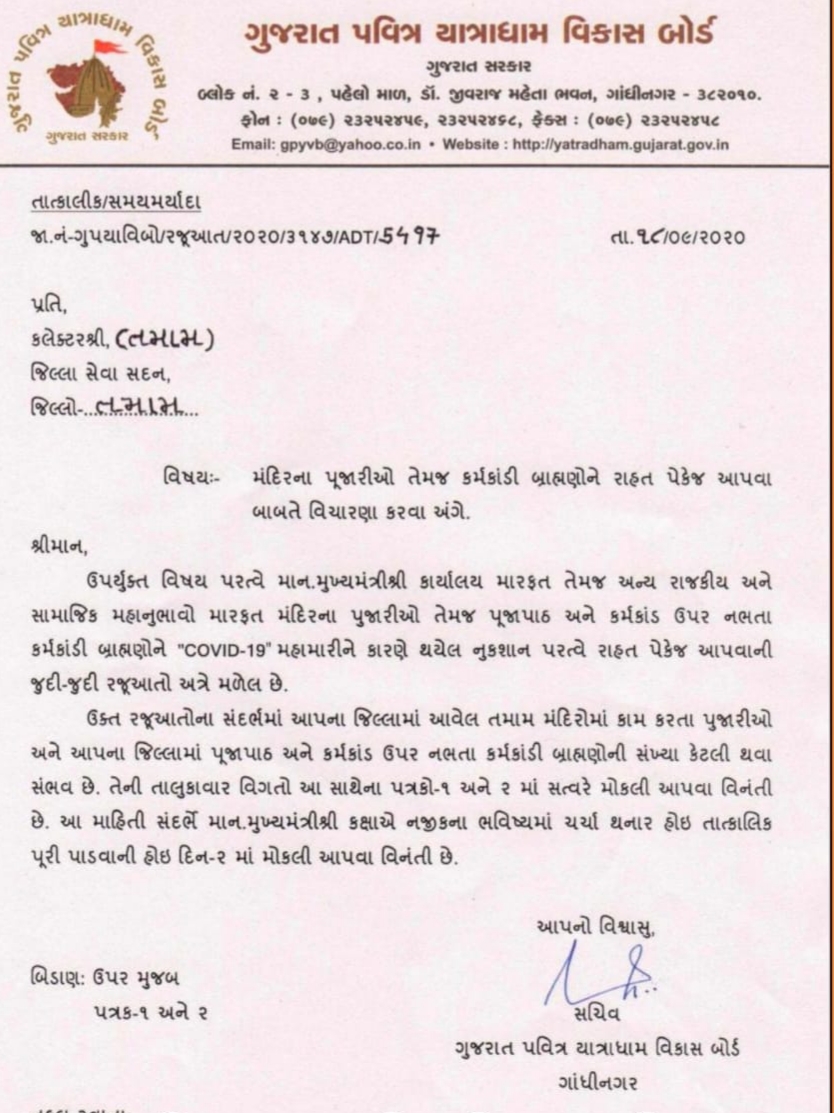 ગુજરાત પવિત્ર યાત્રાધામ વિકાસ બોર્ડ
ગુજરાત સરકાર
ગુજરાત પવિત્ર યાત્રાધામ વિકાસ બોર્ડ
ગુજરાત સરકાર
બ્લોક નં. ૨ - ૩ , પહેલો માળ, ડૉ. જીવરાજ મહેતા ભવન, ગાંધીનગર - ૩૮૨૦૧૦.
ફોન : (૦૭૯) ૨૩૨૫૨૪૫૯, ૨૩૨૫૨૪૬૮, ફેક્સ : (૦૭૯) ૨૩૨૫૨૪૫૮
Email: gpyvb@yahoo.co.in • Website : http://yatradham.gujarat.gov.in
તાત્કાલીક/સમયમર્યાદા
જા.નં-ગુપયાવિબો/રજૂઆત/૨૦૨૦/૩૧૪૭/ADT/5497
તા.૧૮/૦૯/૨૦૨૦
પ્રતિ,
કલેક્ટરશ્રી, (તમામ)
જિલ્લા સેવા સદન,
જિલ્લો-..તમામ...
વિષયઃ- મંદિરના પૂજારીઓ તેમજ કર્મકાંડી બ્રાહ્મણોને રાહત પેકેજ આપવા
બાબતે વિચારણા કરવા અંગે.
શ્રીમાન,
ઉપર્યુક્ત વિષય પરત્વે માન.મુખ્યમંત્રીશ્રી કાર્યાલય મારફત તેમજ અન્ય રાજકીય અને
સામાજિક મહાનુભાવો મારફત મંદિરના પુજારીઓ તેમજ પૂજાપાઠ અને કર્મકાંડ ઉપર નભતા
કર્મકાંડી બ્રાહ્મણોને "COVID-19" મહામારીને કારણે થયેલ નુકશાન પરત્વે રાહત પેકેજ આપવાની
જુદી-જુદી રજૂઆતો અત્રે મળેલ છે.
ઉક્ત રજૂઆતોના સંદર્ભમાં આપના જિલ્લામાં આવેલ તમામ મંદિરોમાં કામ કરતા પુજારીઓ
અને આપના જિલ્લામાં પૂજાપાઠ અને કર્મકાંડ ઉપર નભતા કર્મકાંડી બ્રાહ્મણોની સંખ્યા કેટલી થવા
સંભવ છે. તેની તાલુકાવાર વિગતો આ સાથેના પત્રકો-૧ અને ૨ માં સત્વરે મોકલી આપવા વિનંતી
છે. આ માહિતી સંદર્ભે માન.મુખ્યમંત્રીશ્રી કક્ષાએ નજીકના ભવિષ્યમાં ચર્ચા થનાર હોઇ તાત્કાલિક
પૂરી પાડવાની હોઇ દિન-૨ માં મોકલી આપવા વિનંતી છે.
આપનો વિશ્વાસુ,
બિડાણ: ઉપર મુજબ
પત્રક-૧ અને ૨
સચિવ
ગુજરાત પવિત્ર યાત્રાધામ વિકાસ બોર્ડ
ગાંધીનગર